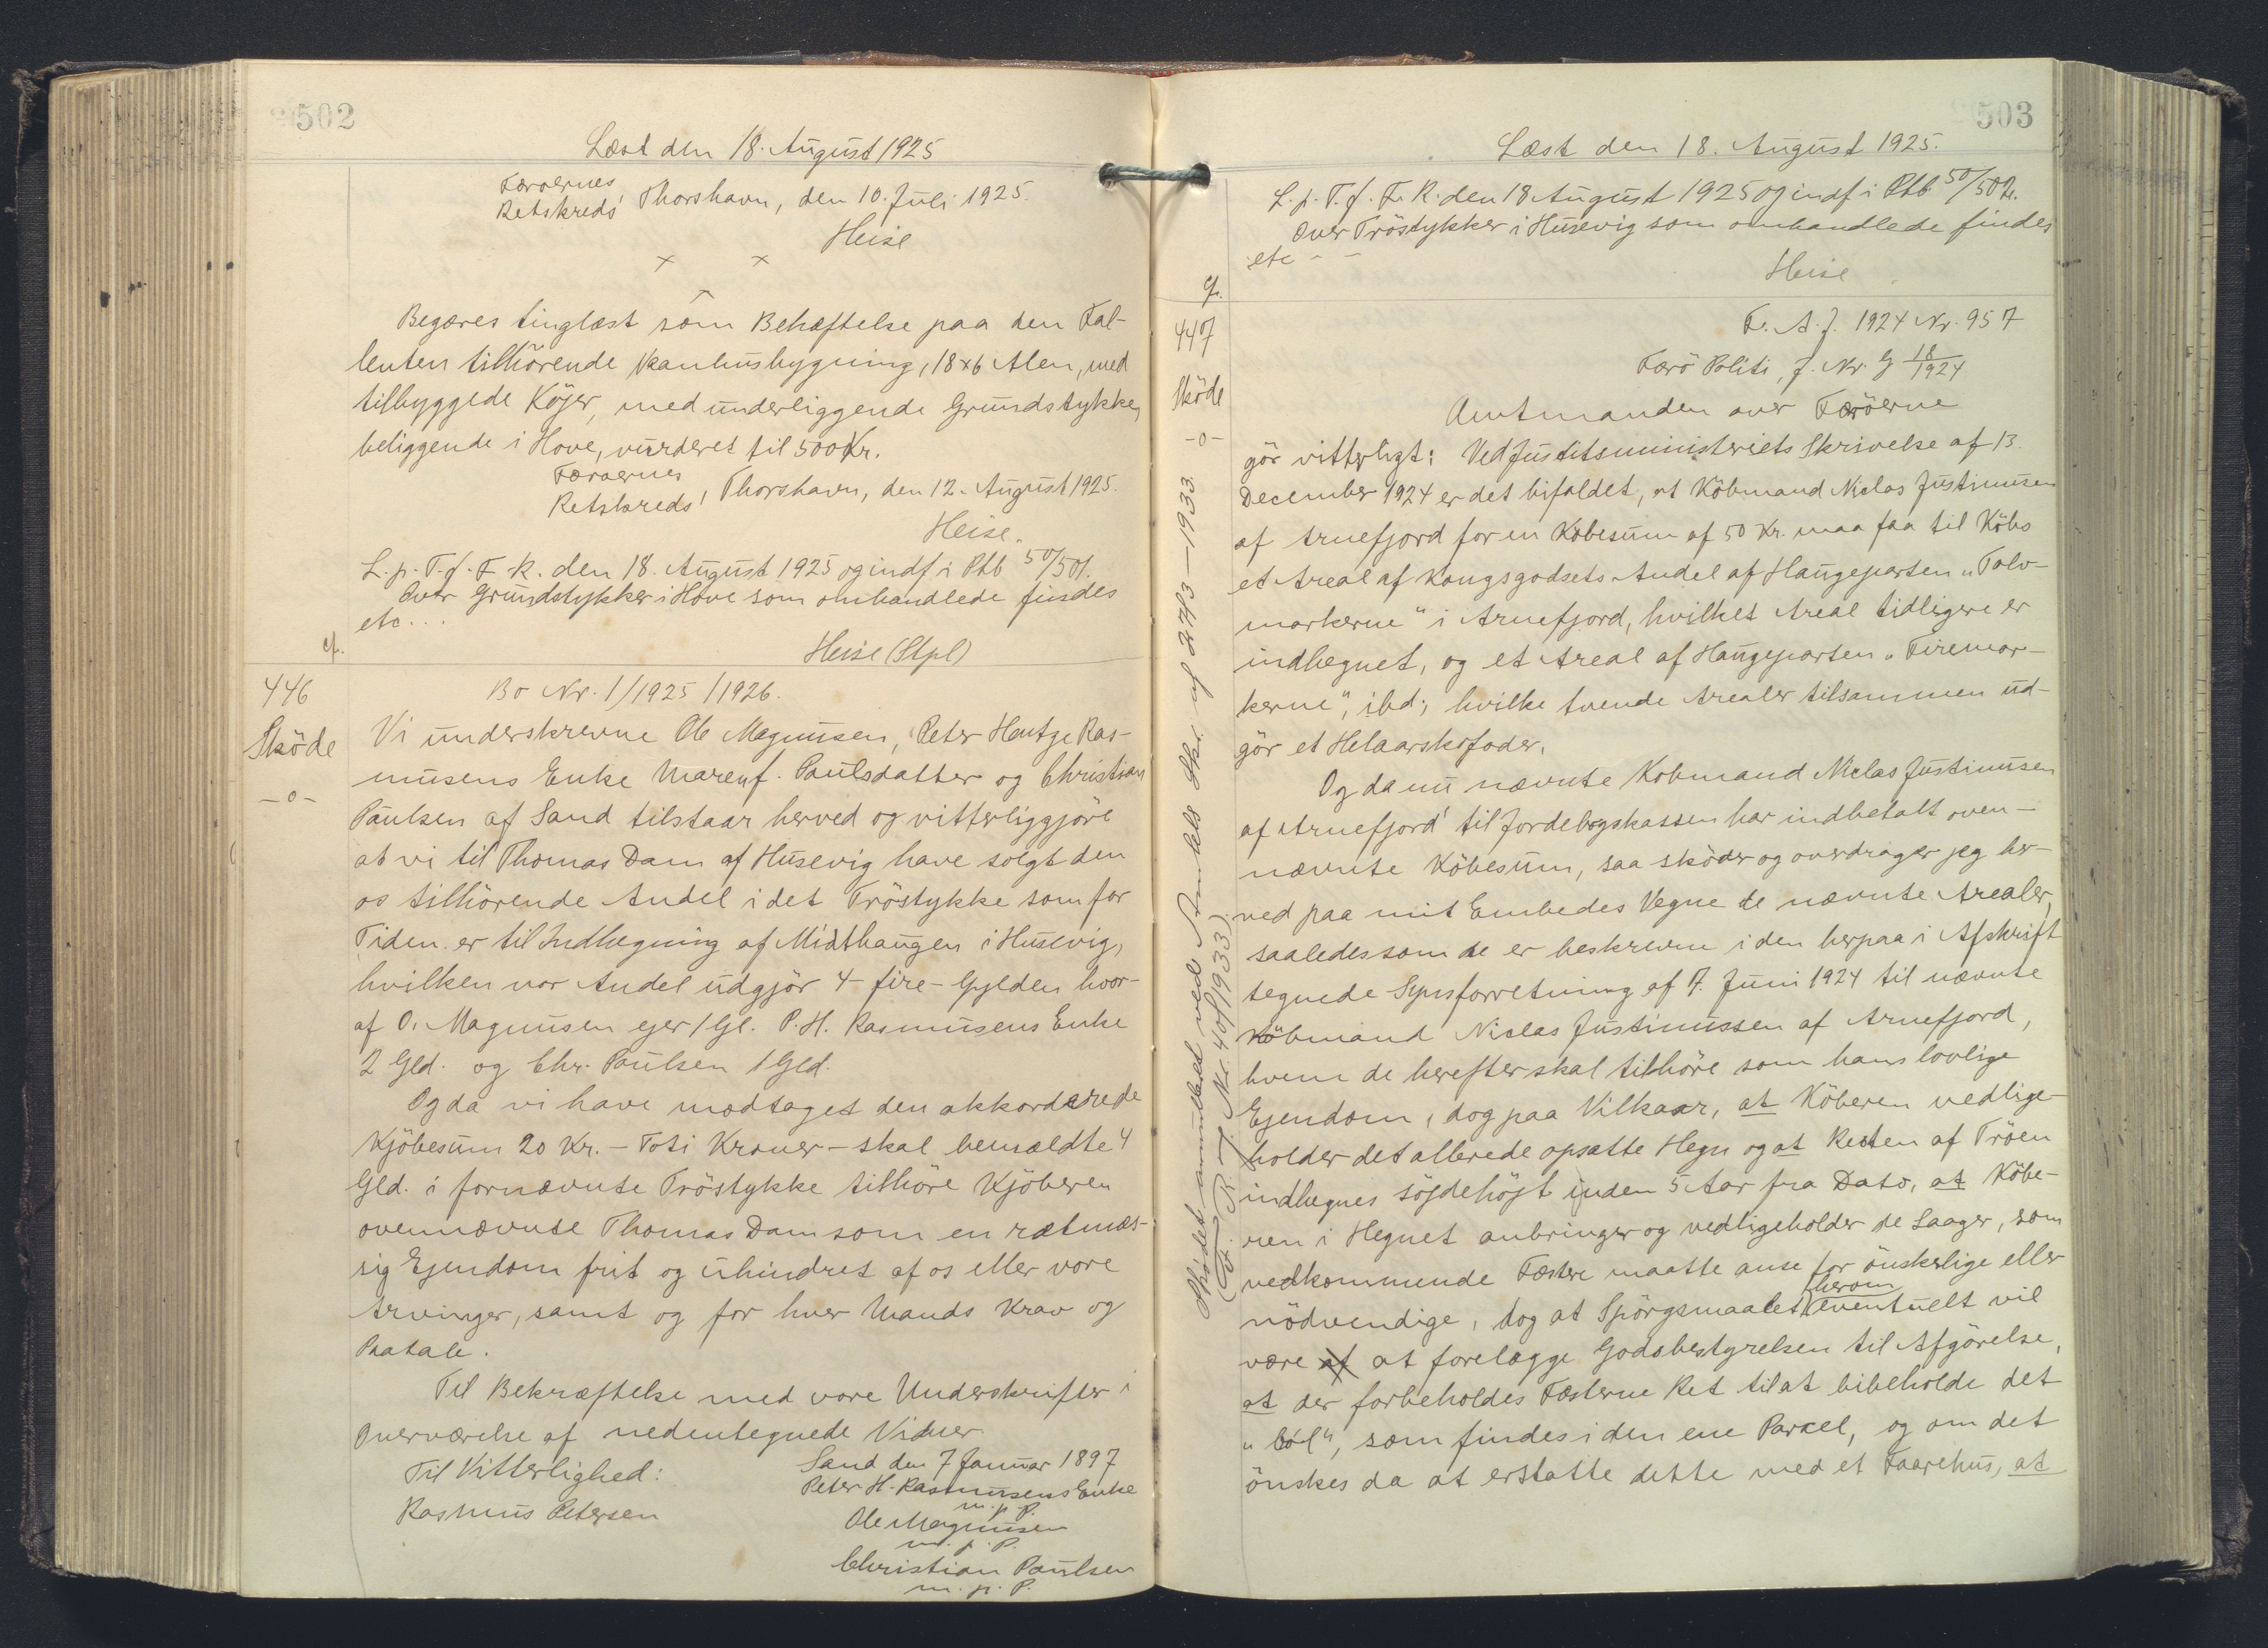 502
Læst den 18. August 1925
Færøernes
Retskreds, Thorshavn, den 10. Juli 1925.
Heise
× ×
Begæres tinglæst som Behæftelse paa den Fal-
lenten tilhörende Pakhusbygning, 18×6 Alen, med
tilbyggede Köjer, med underliggende Grundstykke,
beliggende i Hove, vurderet til 500 Kr.
Færøernes
Retskreds, Thorshavn, den 12. August 1925.
Heise.
L. p. T. f. F. R. den 18. August 1925 og indf i Ptb 50/501.
Over Grundstykker i Hove som omhandlede findes
etc...
Heise (Stpl)
cf.
446
Sköde
-o-
Bo Nr. 1/1925/1926.
Vi underskrevne Ole Magnusen, Peter Hentze Ras-
musens Enke Maren f. Paulsdatter og Christian
Paulsen af Sand tilstaar herved og vitterliggjöre
at vi til Thomas Dam af Husevig have solgt den
os tilhörende Andel i det Tröstykke som for
Tiden er til Indhegning af Midthaugen i Husevig,
hvilken vor Andel udgjör 4 - fire - Gylden hvor-
af O. Magnusen ejer 1 Gl. P. H. Rasmusens Enke
2 Gld. og Chr. Paulsen 1 Gld.
Og da vi have modtaget den akkorderede
Kjöbesum 20 Kr. - Toti Kroner - skal bemældte 4
Gld. i fornævnte Tröstykke tilhöre Kjöberen
ovennævnte Thomas Dam som en retmæs-
sig Ejendom frit og uhindret af os eller vore
Arvinger, samt og for hver Mands Krav og
Paatale.
Til Bekræftelse med vore Underskrifter i
Overværelse af nedentegnede Vidner
Sand den 7 Januar 1897
Til Vitterlighed:
Peter H. Rasmusens Enke
m. p. P.
Rasmus Petersen
Ole Magnusen
m. p. P.
Christian Paulsen
m. p. P.
503
Læst den 18. August 1925.
L. p. T. f. F. R. den 18 August 1925 og indf i Ptb 50/502.
Over Tröstykker i Husevig som omhandlede findes
etc - -
Heise
cf.
447
Sköde
-o-
F. A. J. 1924 Nr. 957
Færö Politi, J. Nr. G 18/1924
Amtmanden over Færöerne
gör vitterligt: Ved Justitsministeriets Skrivelse af 13.
December 1924 er det bifaldet, at Köbmand Niclas Justinusen
af Arnefjord for en Köbesum af 50 Kr. maa faa til Köbs
et Areal af Kongsgodsets Andel af Haugeparten "Tolv-
markerne" i Arnefjord, hvilket Areal tidligere er
indhegnet, og et Areal af Haugeparten "Firemar-
kerne", ibd., hvilke tvende Arealer tilsammen ud-
gör et Helaarskofoder.
Og da nu nævnte Köbmand Niclas Justinusen
af Arnefjord til Jordebogskassen har indbetalt oven-
nævnte Köbesum, saa sköder og overdrager jeg her-
ved paa mit Embedes Vegne de nævnte Arealer,
saaledes som de er beskrevne i den herpaa i Afskrift
tegnede Synsforretning af 17. Juni 1924 til nævnte
Köbmand Niclas Justinussen af Arnefjord,
hvem de herefter skal tilhöre som hans lovlige
Ejendom, dog paa Vilkaar, at Köberen vedlige-
holder det allerede opsatte Hegn og at Resten af Tröen
indhegnes söjdehöjt inden 5 Aar fra Dato, at Köbe-
ren i Hegnet anbringer og vedligeholder de Laager, som
vedkommende Fæstere maatte anse for önskelige eller
nödvendige, dog at Spörgsmaalet herom eventuelt vil
være at at forelægge Godsbestyrelsen til Afgörelse,
at der forbeholdes Fæsterne Ret til at bibeholde det
"ból", som findes i den ene Parcel, og om det
önskes da at erstatte dette med et Faarehus, at
Sködet annulleret ved Amtets Skr. af 27/3-1933.
(F. R. J. Nr. 40/1933)